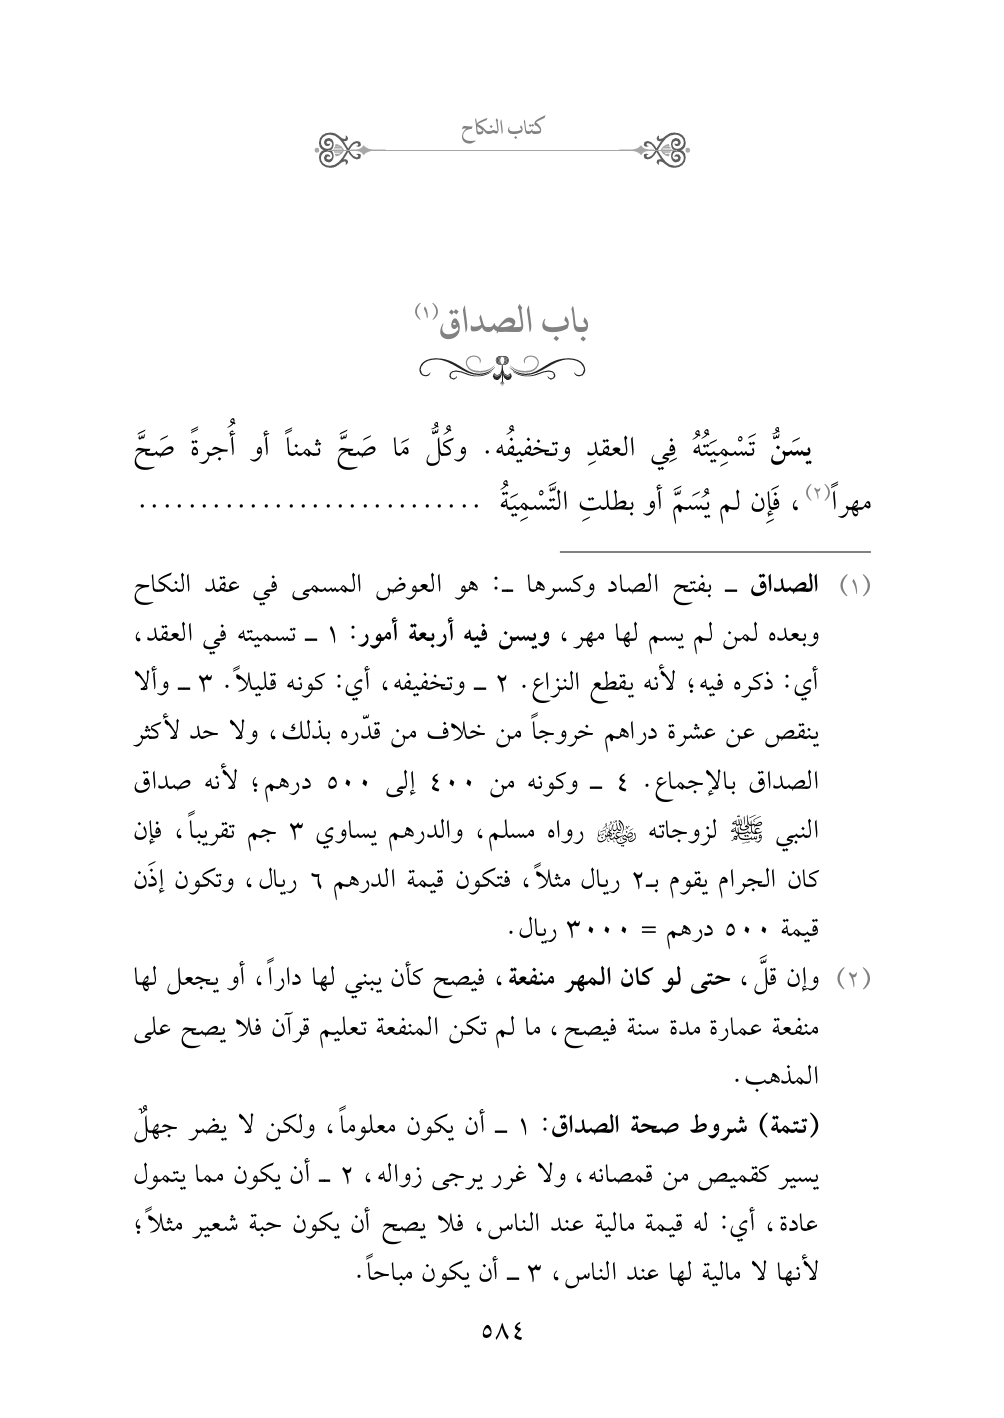 كتاب النكاح
باب الصداق(١)
يسَنُّ تَسْمِيَتُهُ فِي العقدِ وتخفيفُه. وكُلُّ مَا صَحَّ ثمناً أو أُجرةً صَحَّ
مهراً(٢)، فَإِن لم يُسَمَّ أو بطلتِ التَّسْمِيَةُ ............................
(١) الصداق ـ بفتح الصاد وكسرها ـ: هو العوض المسمى في عقد النكاح
وبعده لمن لم يسم لها مهر، ويسن فيه أربعة أمور: ١ ـ تسميته في العقد،
أي: ذكره فيه؛ لأنه يقطع النزاع. ٢ ـ وتخفيفه، أي: كونه قليلاً. ٣ ـ وألا
ينقص عن عشرة دراهم خروجاً من خلاف من قدّره بذلك، ولا حد لأكثر
الصداق بالإجماع. ٤ ـ وكونه من ٤٠٠ إلى ٥٠٠ درهم؛ لأنه صداق
النبي ﷺ لزوجاته رضي الله عنهن رواه مسلم، والدرهم يساوي ٣ جم تقريباً، فإن
كان الجرام يقوم بـ٢ ريال مثلاً، فتكون قيمة الدرهم ٦ ريال، وتكون إذَن
قيمة ٥٠٠ درهم = ٣٠٠٠ ريال.
(٢) وإن قلَّ، حتى لو كان المهر منفعة، فيصح كأن يبني لها داراً، أو يجعل لها
منفعة عمارة مدة سنة فيصح، ما لم تكن المنفعة تعليم قرآن فلا يصح على
المذهب.
(تتمة) شروط صحة الصداق: ١ ـ أن يكون معلوماً، ولكن لا يضر جهلٌ
يسير كقميص من قمصانه، ولا غرر يرجى زواله، ٢ ـ أن يكون مما يتمول
عادة، أي: له قيمة مالية عند الناس، فلا يصح أن يكون حبة شعير مثلاً؛
لأنها لا مالية لها عند الناس، ٣ ـ أن يكون مباحاً.
٥٨٤